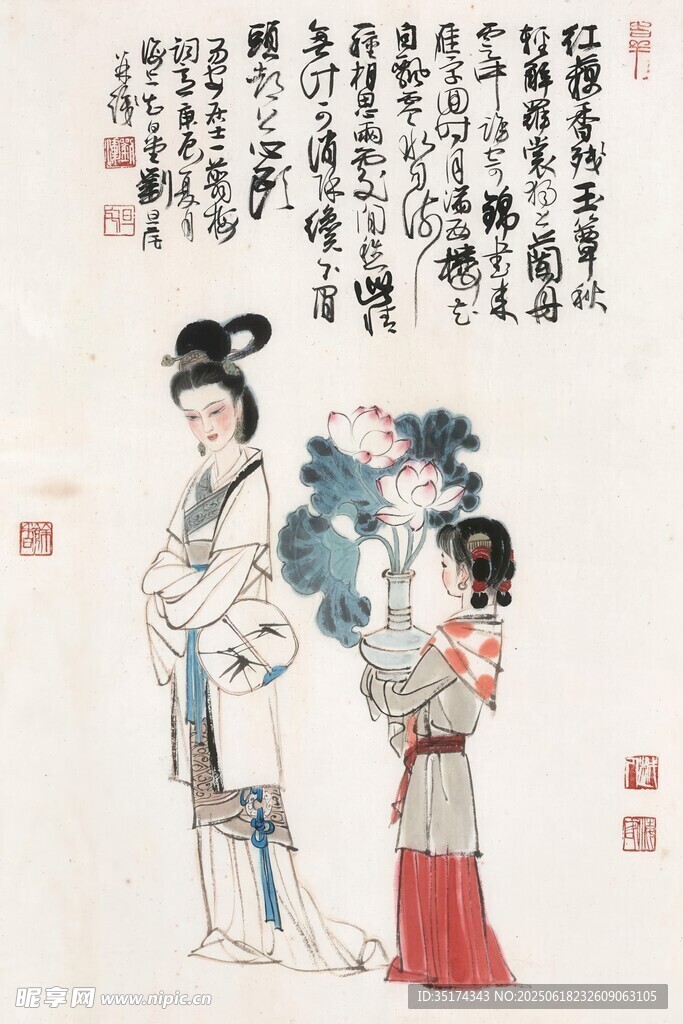 红藕香残玉簟秋
輕解羅裳獨上蘭舟
雲中誰寄錦書来
雁字回时月满西樓花
自飄零水自流
一種相思兩處閒愁此情
無计可消除纔下眉
頭却上心头
易安居士一翦梅
词意庚辰夏月
海上劉旦宅
并識
昵享网 www.nipic.cn
ID:35174343 NO:20250618232609063105